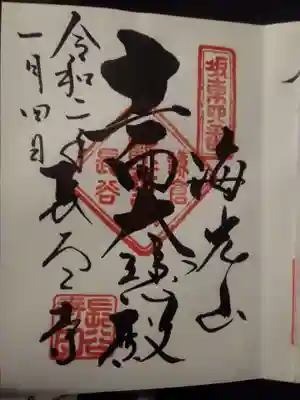 坂東四番
海光山
十一面大悲殿
鎌倉
長谷
長谷寺
令和二年
一月四日